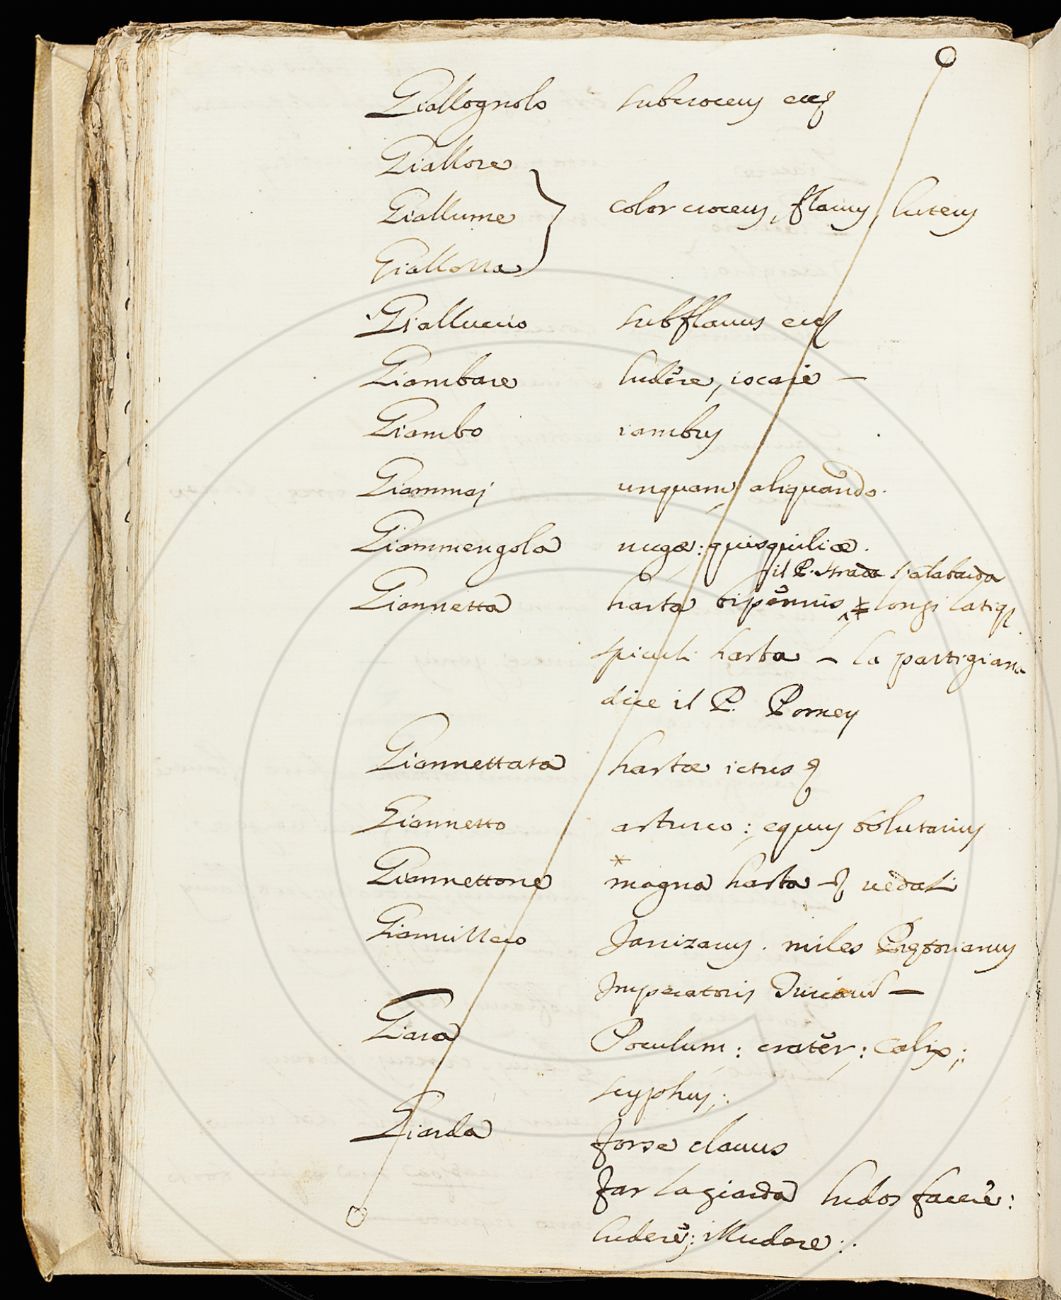 Giallognolo subcroceus
Giallore
Giallume color croceus, flavus, luteus
Giallorra
Gialluccio subflavus
Giambare ludĕre, iocari —
Giambo iambus
Giammaj unquam, aliquando.
Giammengola nugæ: quisquiliæ.
il P. Strada l'alabarda
Giannetta hasta bipĕnnis, longi latiq
spiculi hasta — la partigiana
dice il P. Pomey
Giannettata hastæ ictus
Giannetto asturco: equus
Giannettone magna hasta
Giannizzero Janizarus. miles Prætorianus
Imperatoris —
Giara Poculum: cratĕr: Calix:
scyphus:
Giarda forse clavus
Far la giarda ludos facĕre:
ludere: illudere: